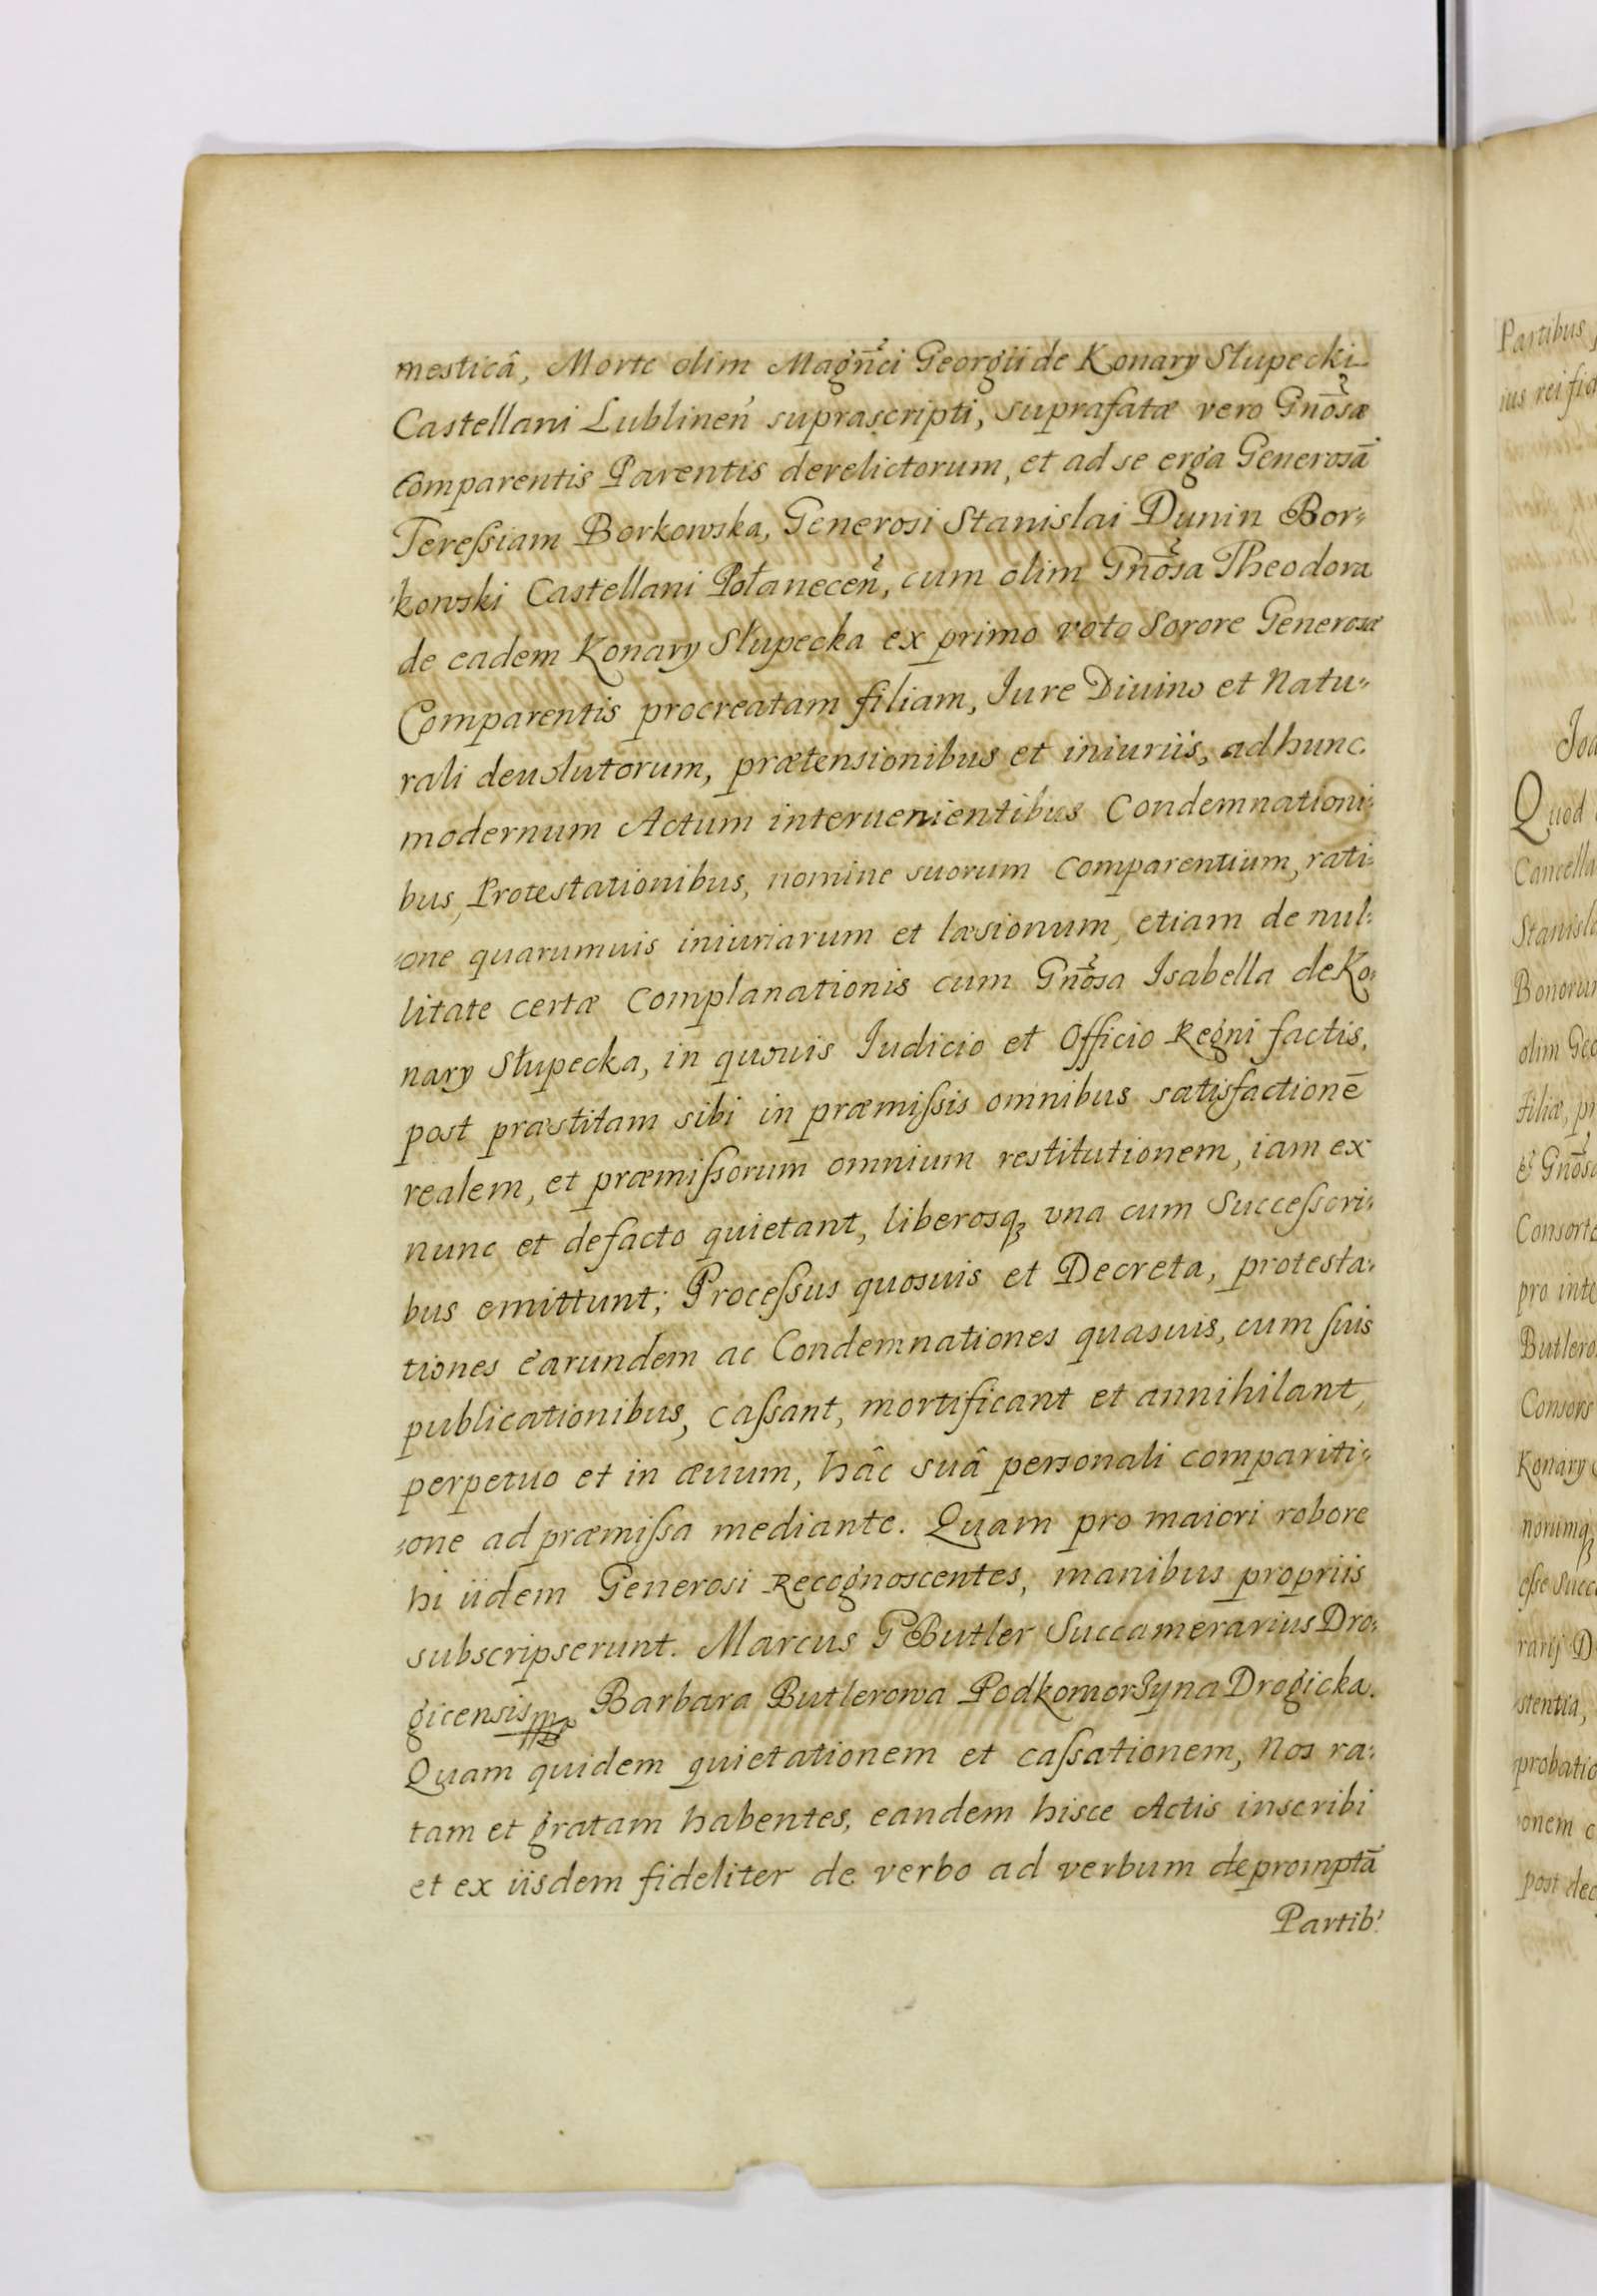 mesticâ, Morte olim Magn̄ci Georgii de Konary Słupecki
Castellani Lublineń suprascripti, suprafatæ vero Gnōsæ
Comparentis Parentis derelictorum, et ad se erga Generosā
Tereſsiam Borkowska, Generosi Stanislai Dunin Bor⸗
kowski Castellani Połanecen̄, cum olim Gnōsa Theodora
de eadem Konary Słupecka ex primo voto Sorore Generosæ
Comparentis procreatam filiam, Iure Diuino et Natu⸗
rali deuolutorum, prætensionibus et iniuriis, ad hunc
modernum Actum interuenientibus Condemnationi⸗
bus, Protestationibus, nomine suorum Comparentium, rati⸗
⸗one quarumuis iniuriarum et læsionum, etiam de nul⸗
litate certæ Complanationis cum Gnōsa Isabella de Ko⸗
nary Słupecka, in quouis Iudicio et Officio Regni factis,
post præstitam sibi in præmiſsis omnibus satisfactionē
realem, et præmiſsorum omnium restitutionem, iam ex
nunc et defacto quietant, liberosqꝫ vna cum Succeſsori⸗
bus emittunt; Proceſsus quosuis et Decreta, protesta⸗
tiones earundem ac Condemnationes quasuis, cum ſuis
publicationibus, caſsant, mortificant et annihilant,
perpetuo et in æuum, hâc suâ personali compariti⸗
⸗one ad præmiſsa mediante. Quam pro maiori robore
hi iidem Generosi Recognoscentes, manibus propriis
subscripserunt. Marcus G Butler Succamerarius Dro⸗
gicensis mp Barbara Butlerowa Podkomorzyna Drogicka.
Quam quidem quietationem et caſsationem, Nos ra⸗
tam et gratam habentes, eandem hisce Actis inscribi
et ex iisdem fideliter de verbo ad verbum depromptā
Partib'
Partibus
ius rei fid
Quod
Cancella
Stanisla
Bonorum
olim Geo
Filiæ, pr
& Gnōsa
Consorte
pro inte
Butlero
Consors
Konary
norumqꝫ
eſse Succe
rarij D
stentia,
probatio
onem
post dec